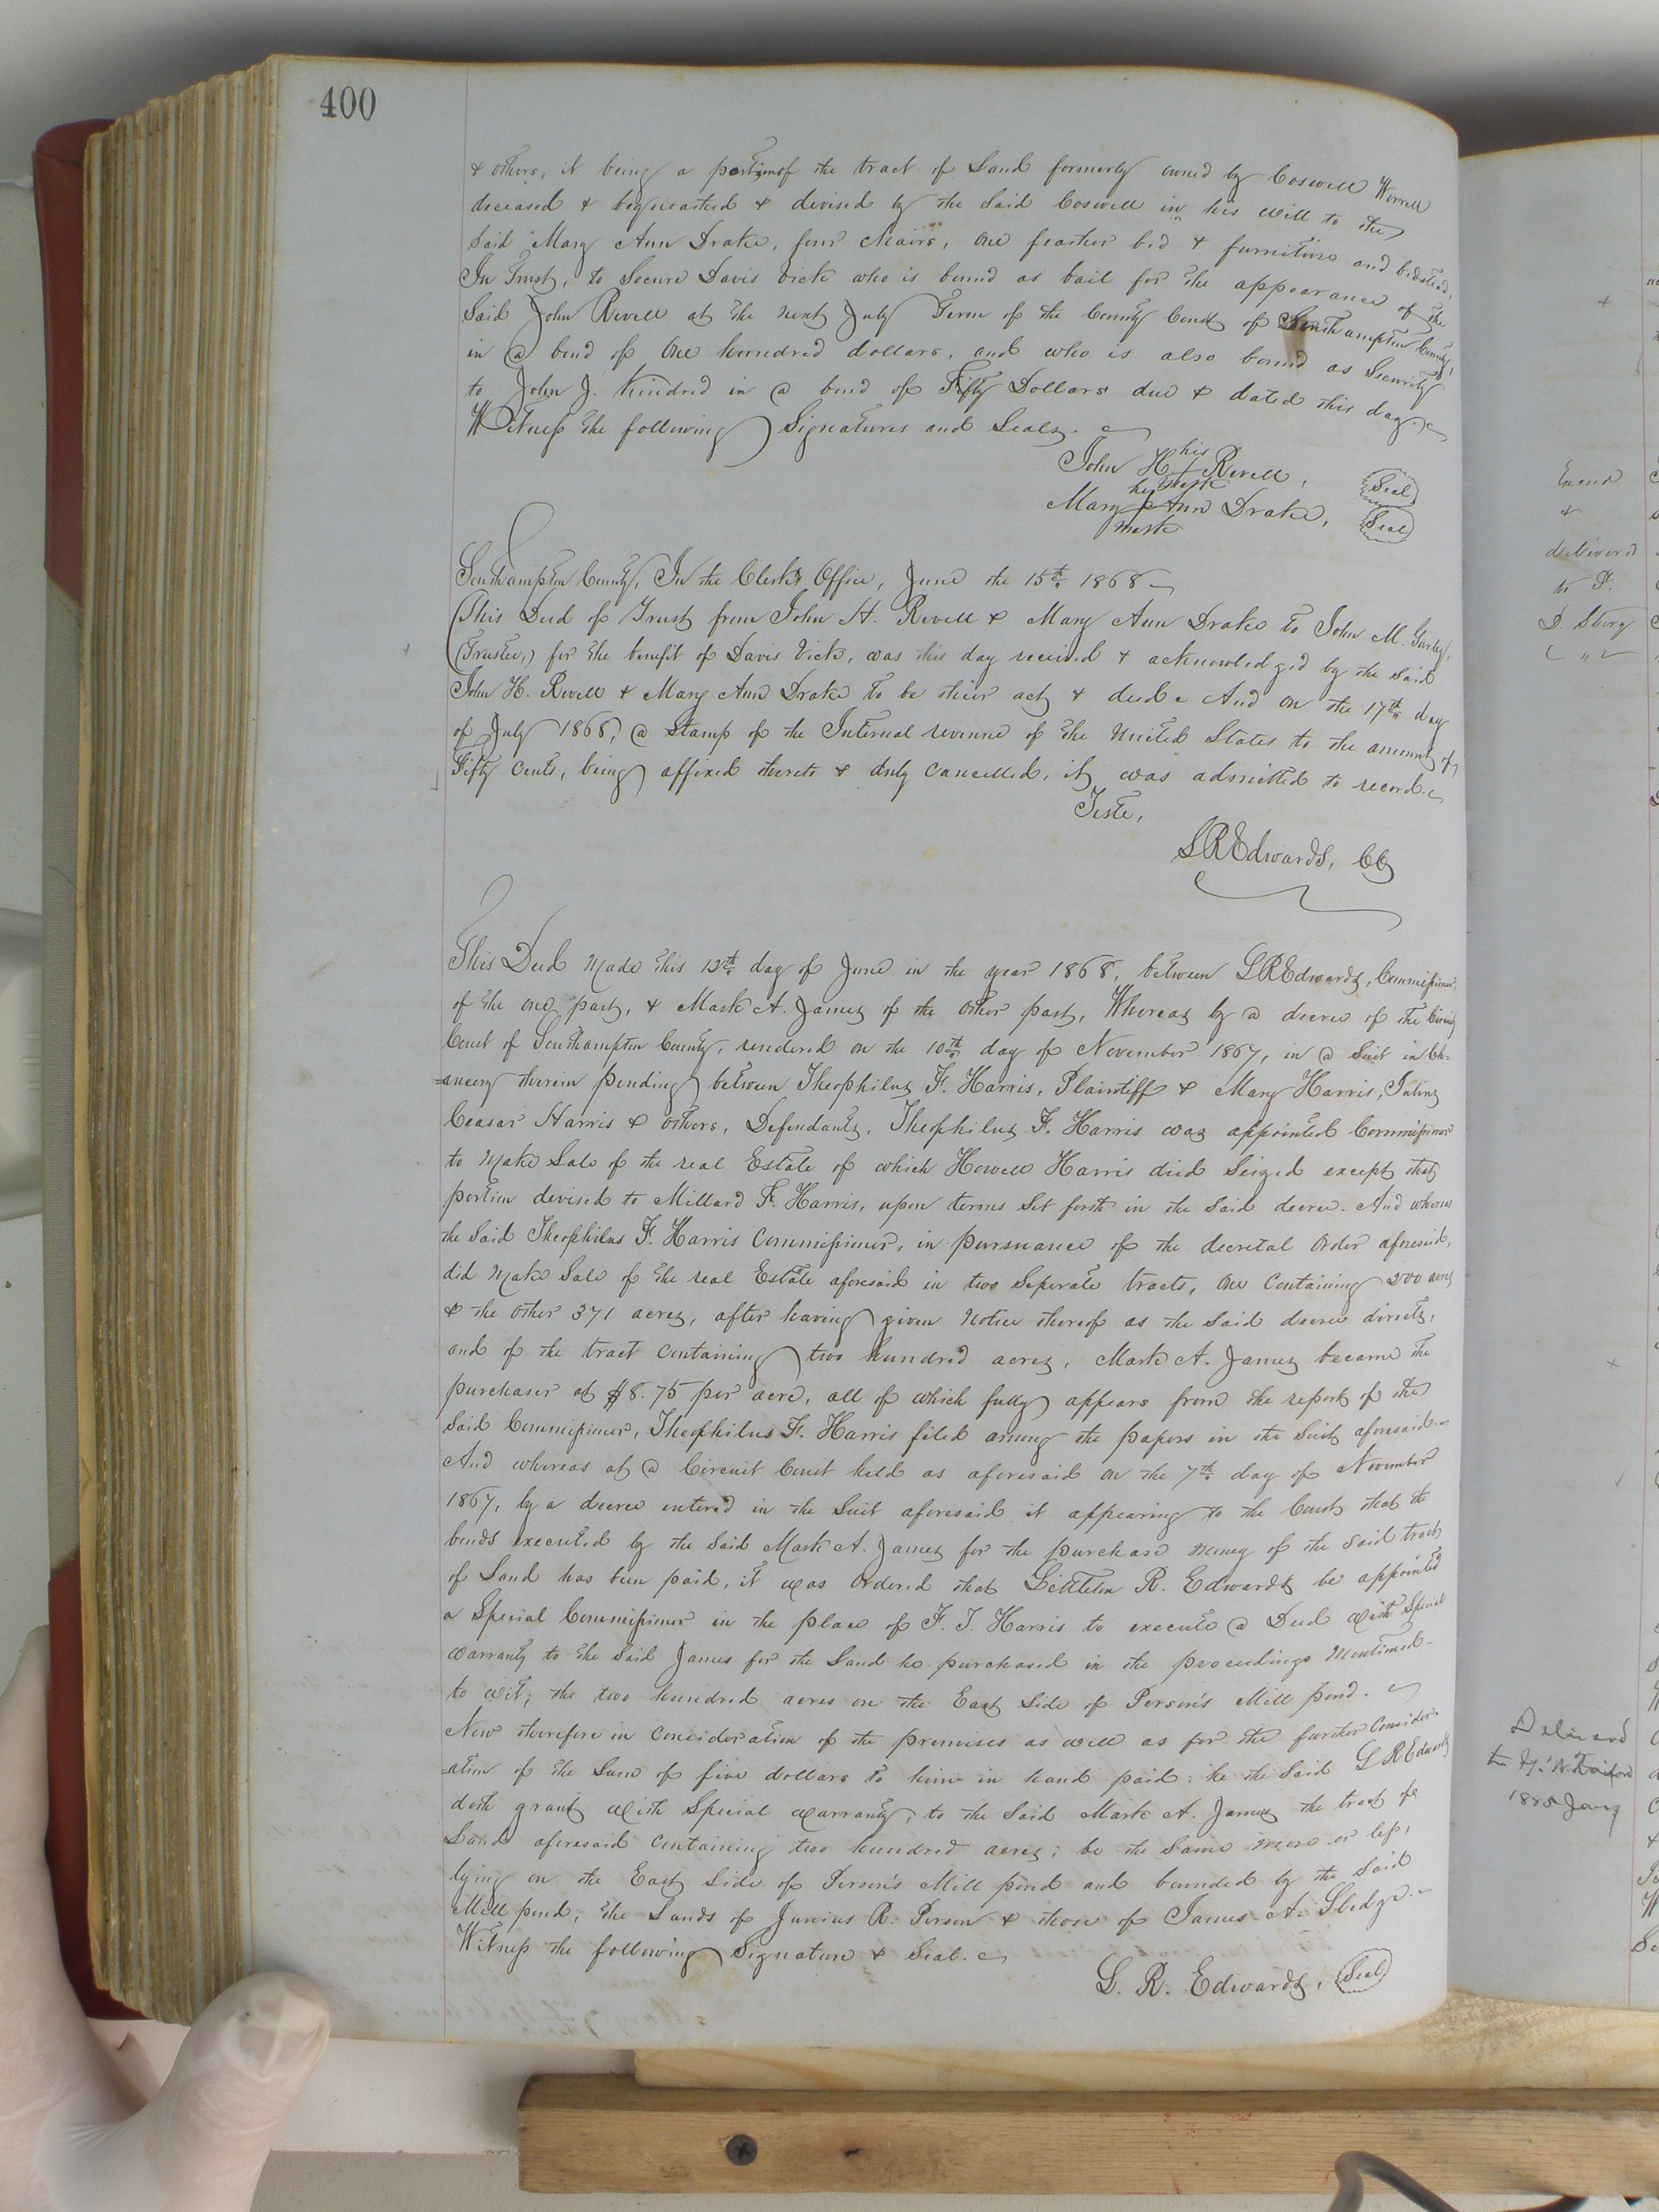 400
& others, it being a portion of the tract of Land formerly owned by Coswell Worrell
deceased & bequeathed & devised by the said Coswell in his will to the
said Mary Ann Drake, four chairs, one feather bed & furniture and bedstead,
In Trust, to Secure Davis Vick who is bound as bail for the appearance of the
said John Revell at the next July Term of the County Court of Southampton County,
in a bond of One hundred dollars, and who is also bound as Security
to John J. Kindred in a bond of Fifty Dollars due & dated this day.
Witness the following Signatures and Seals.
his
John H. + Revell, Seal
her mark
Mary + Ann Drake, Seal
mark
Southampton County, In the Clerk's Office, June the 15th 1868
This Deed of Trust from John H. Revell & Mary Ann Drake to John M. Gurley,
(Trustee,) for the benefit of Davis Vick, was this day received & acknowledged by the said
John H. Revell & Mary Ann Drake to be their act & deed. And on the 17th day
of July 1868, a Stamp of the Internal revenue of the United States to the amount of
Fifty cents, being affixed thereto & duly cancelled, it was admitted to record.
Teste,
L R Edwards, CC
This Deed Made this 12th day of June in the year 1868, between L R Edwards, Commissioner
of the one part, & Mark A. James of the other part, Whereas by a decree of the Circuit
Court of Southampton County, rendered on the 10th day of November 1867, in a Suit in Ch-
=ancery therein pending between Theophilus F. Harris, Plaintiff & Mary Harris, Julius
Ceasar Harris & others, Defendants, Theophilus F. Harris was appointed Commissioner
to Make Sale of the real Estate of which Howell Harris died Seized except that
portion devised to Millard F. Harris, upon terms Set forth in the said decree. And whereas
the said Theophilus F. Harris Commissioner, in pursuance of the decretal order aforesaid,
did Make Sale of the real Estate aforesaid in two Seperate tracts, one Containing 200 acres
& the other 371 acres, after having given Notice thereof as the said decree directs,
and of the tract Containing two hundred acres, Mark A. James became the
purchaser at $8.75 per acre, all of which fully appears from the report of the
said Commissioner, Theophilus F. Harris filed among the papers in the Suit aforesaid.
And whereas at a Circuit Court held as aforesaid on the 7th day of November
1867, by a decree entered in the Suit aforesaid it appearing to the Court that the
bonds executed by the said Mark A. James for the purchase money of the said tract
of Land has been paid, it was Ordered that Littleton R. Edwards be appointed
a Special Commissioner in the place of F. T. Harris to execute a Deed with Special
warranty to the said James for the Land he purchased in the proceedings Mentioned-
to wit; the two hundred acres on the East Side of Person's Mill pond.
Now therefore in Consideration of the premises as well as for the further Consider-
=ation of the Sum of five dollars to him in hand paid: he the said L R Edwards
doth grant with Special warranty, to the said Mark A. James the tract of
Land aforesaid containing two hundred acres; be the same more or less,
lying on the East Side of Person's Mill pond and bounded by the said
Mill pond, the Lands of Junius R. Person & those of James A. Sledge.
Witness the following Signature & Seal.
L. R. Edwards, Seal
&
delivered
to
Delivered
to
1885